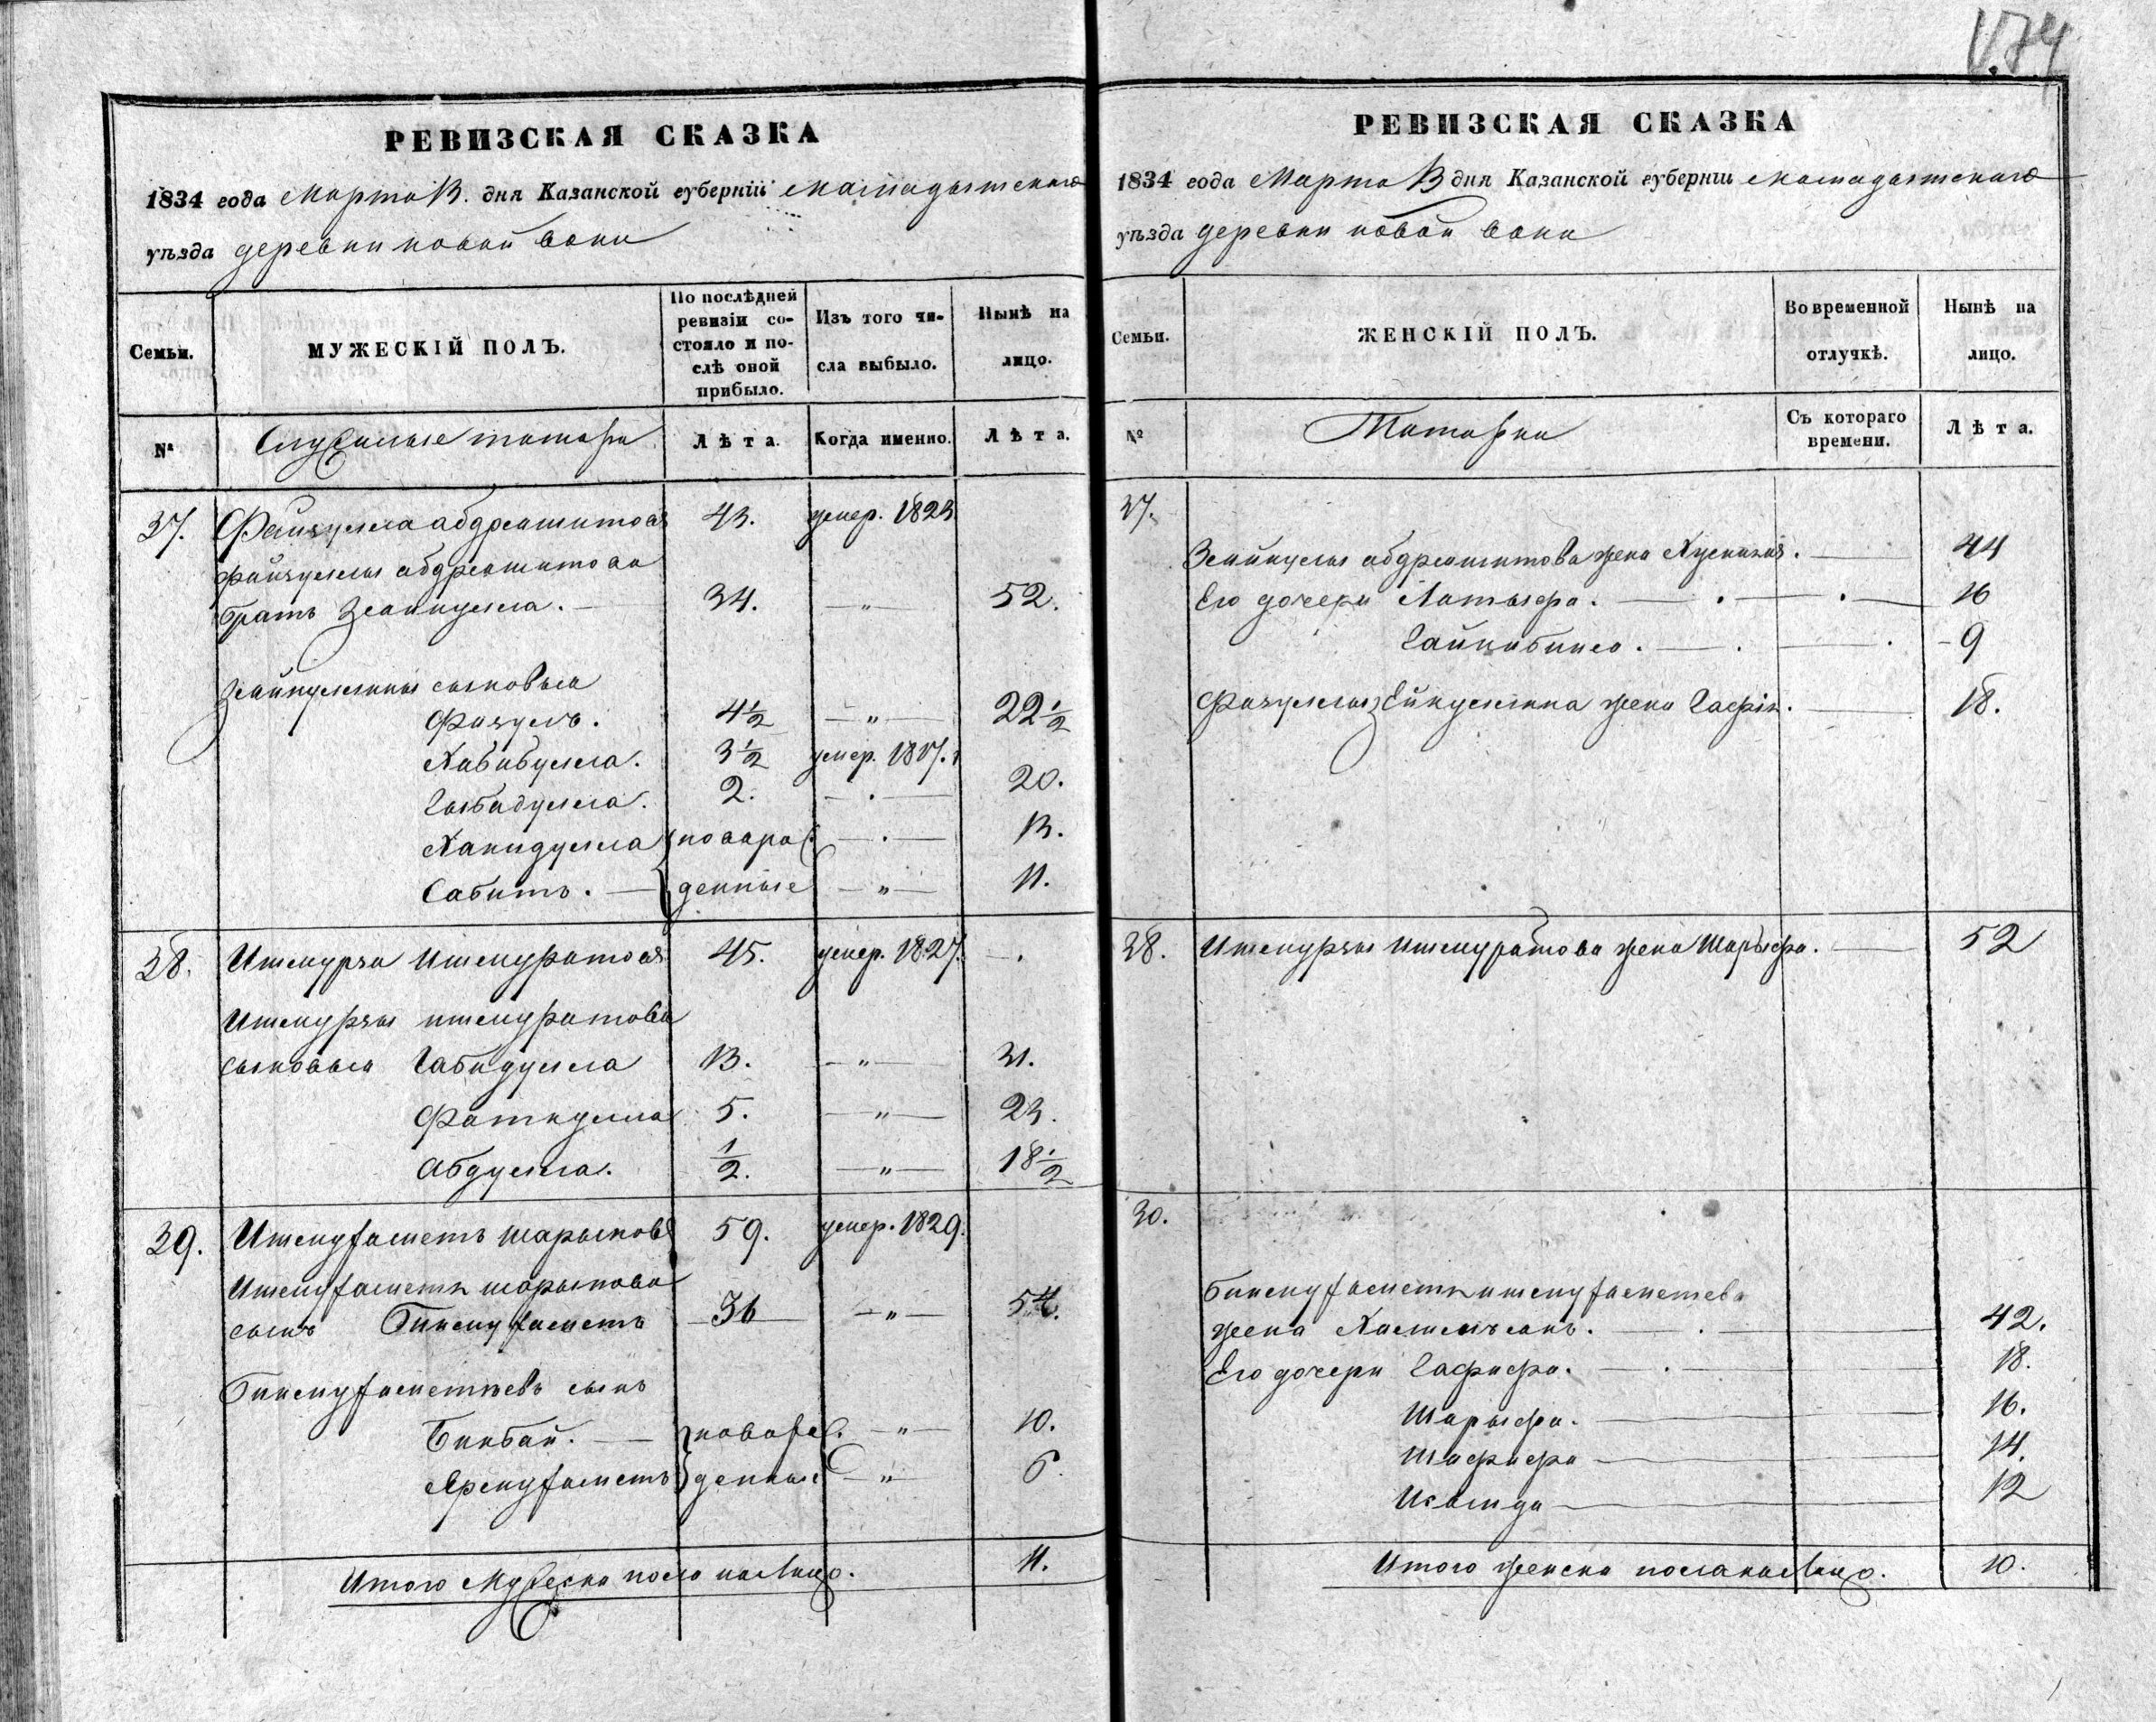 РЕВИЗСКАЯ СКАЗКА
1834 года Марта 13. дня Казанской губерніи Мамадышскаго
уѣзда деревни новой
Семьи.
МУЖЕСКІЙ ПОЛЪ.
По послѣдней ревизіи со-
стояло и по-
слѣ оной
прибыло.
Изъ того чи-
сла выбыло.
Нынѣ на
лицо.
№
Служилые татары
Лѣта.
Когда именно.
Лѣта.
37. Файзулла абдрешитовъ 43. умер. 1823
Файзуллы абдрешитова
братъ Зейнулла. 34. — „ — 52.
Зейнуллины сыновья
Фазулъ. 4½ — „ — 22½
Хабибулла. 3½ умер. 1817.
2. — . — 20.
новорож — . — 13.
Сабитъ. — денные — „ — 11.
38. Ишмурза Ишмуратовъ 45. умер. 1827. — .
Ишмурзы ишмуратова
сыновья Габидулла 13. — „ — 31.
Фаткулла 5. — „ — 23.
Абдулла. ½. — „ — 18½
39. Ишмухаметъ шарыповъ 59. умер. 1829.
Ишмухаметя шарыпова
сынъ Бикмухаметъ 36 — „ — 54.
Бикмухаметьевъ сынъ
Бикбай. — новорож. — „ — 10.
денные — „ — 6.
Итого Мужеска пола на Лицо. 11.
РЕВИЗСКАЯ СКАЗКА
1834 года Марта 13 дня Казанской губерніи Мамадышскаго
уѣзда деревни новой
Семьи.
ЖЕНСКІЙ ПОЛЪ.
Во временной
отлучкѣ.
Нынѣ на
лицо.
№
Татарки
Съ котораго
времени.
Лѣта.
37.
Зейнуллы абдрешитова жена . — 44
Его дочери Латыфа. — . — . — 16
— . — . — 9
жена . — 18.
38. Ишмурзы Ишмуратова жена Шарыфа. — 52
39.
Бикмухаметя ишмухаметева
жена . — . — 42.
Его дочери Гафифа. — . — 18.
Шарыфа. — 16.
Шафифа — 14.
— 12
Итого женска пола на Лицо. 10.